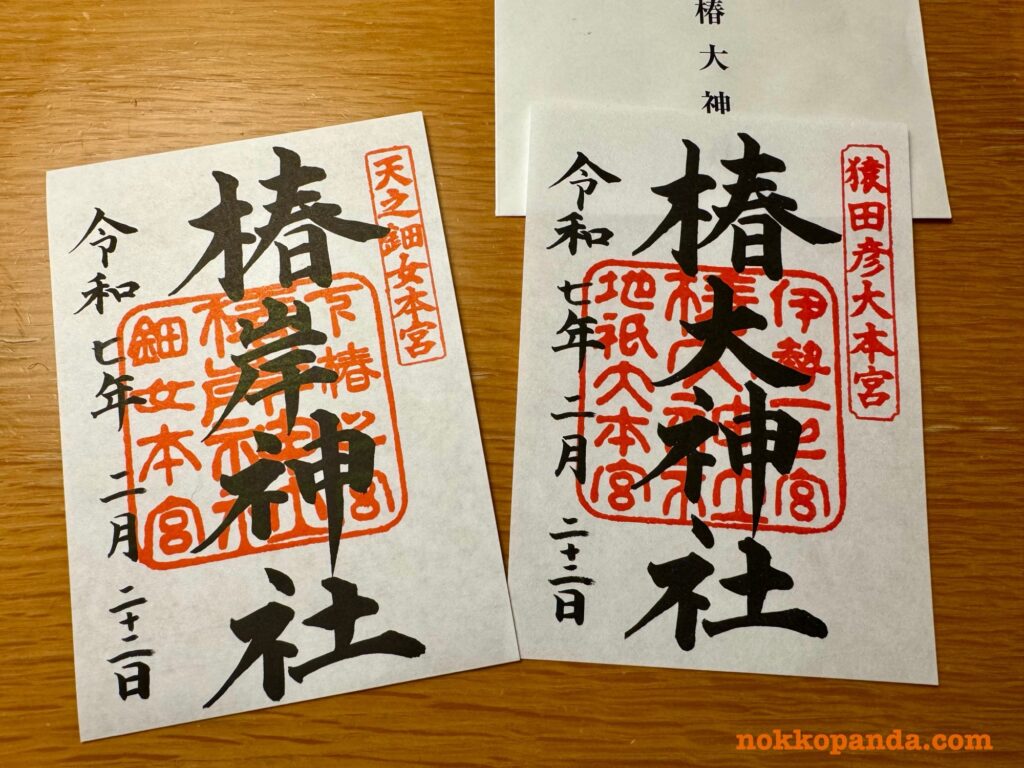 椿大神
天之鈿女本宮
椿岸神社
下椿
椿岸神社
鈿女本宮
令和七年二月二十二日
猿田彦大本宮
椿大神社
伊勢一之宮
椿大神社
地祇大本宮
令和七年二月二十二日
nokkopanda.com